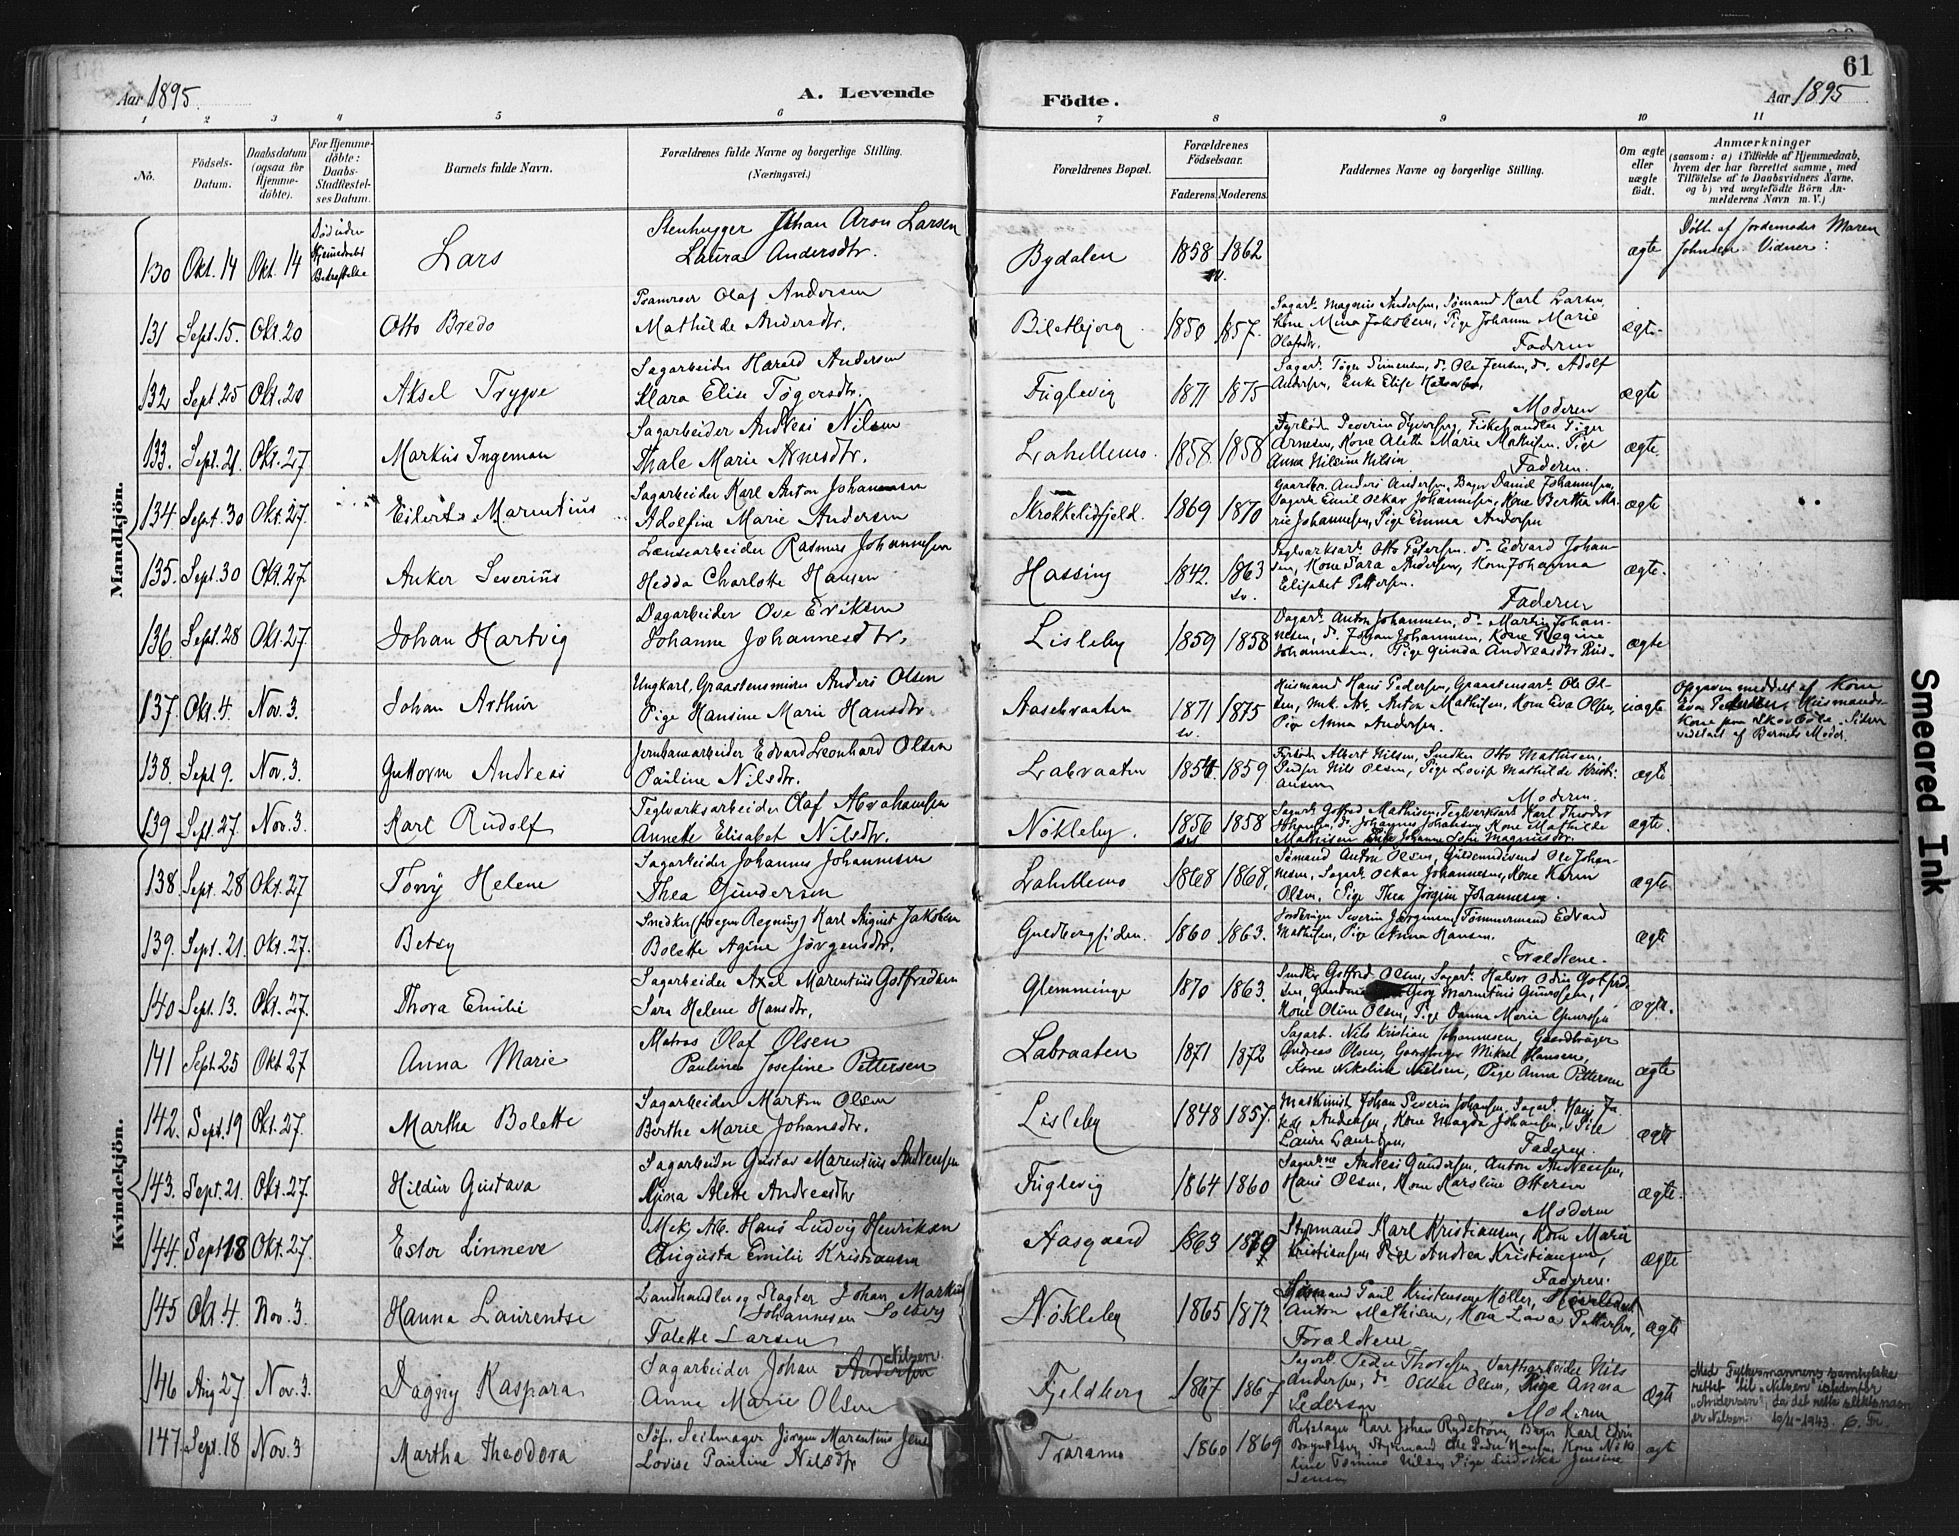 61
Aar 1895.
A. Levende
Födte.
Aar 1895
1 2 3 4 5 6 7 8 9 10 11
No.
Födsels-
Datum.
Daabsdatum
(ogsaa for
Hjemme-
döbte).
For Hjemme-
döbte:
Daabs-
Stadfæstel-
ses Datum.
Barnets fulde Navn.
Forældrenes fulde Navne og borgerlige Stilling.
(Næringsvei.)
Forældrenes Bopæl.
Forældrenes
Födselsaar.
Faderens. Moderens.
Faddernes Navne og borgerlige Stilling.
Om ægte
eller
uægte
födt.
Anmærkninger
(saasom: a) i Tilfælde af Hjemmedaab,
hvem der har forrettet samme, med
Tilföielse af to Daabsvidners Navne,
og b) ved uægtefödte Börn An-
melderens Navn m. V.)
Mandkjön.
130 Okt. 14 Okt. 14 Lars
Stenhugger Johan Aron Larsen
Laura Andersdtr.
Bydalen 1858 1862 ægte
Döbt af Jordemoder Maren
Johnsen Vidner:
131 Sept. 15. Okt. 20 Otto Bredo
Olaf Andersen
Mathilde Andersdtr.
1850 1857. ægte
Sagarb. Magnus Andersen, Sömand Karl Larsen,
Kone Mina Jakobsen, Pige Johanne Marie
Olafsdtr. Faderen
132 Sept. 25 Okt. 20 Aksel Trygve
Sagarbeider Harald Andersen
Klara Elise Tögersdtr.
Fuglevig 1871 1875 ægte
Sagarb. Töger Simensen, do. Ole Jensen, do. Adolf
Andersen, Enke Elise
Moderen
133. Sept. 21. Okt. 27 Markus Ingeman
Sagarbeider Andreas Nilsen
Thale Marie Arnesdtr.
Lahellemo. 1858 1858 ægte
Arnesen, Kone Alette Marie Mathisen. Pige
Anna Nilsen
Faderen.
134 Sept. 30 Okt. 27. Eilerts Marentius
Sagarbeider Karl Anton Johannesen
Adolfine Marie Andersen
1869 1870 ægte
Gaardbr. Anders Andersen, Bager Daniel Johannesen,
Sagarb. Emil Oskar Johannesen, Kone Bertha Ma-
rie Johannesen, Pige Emma Andersen
135. Sept. 30 Okt. 27. Anker Severins
Lænsearbeider Rasmus Johannesen
Hedda Charlotte Hansen
Hassing 1842. 1863 ægte.
Teglverksarb. Otto Petersen. do. Edvard Johan-
sen, Kone Sara Andersen, Kone Johanna
Elisabet Pettersen.
Faderen
136. Sept. 28 Okt. 27. Johan Hartvig
Dagarbeider Ove Eriksen
Johanne Johannesdtr.
Lisleby 1859 1858 ægte
Dagarb. Anton Johannesen, do. Martin Johan-
nesen, do. Johan Johannesen, Kone Regine
Johannesen, Pige Gunda Andreasdtr
137. Okt. 4. Nov. 3. Johan Arthur
Ungkarl, Anders Olsen
Pige Hansine Marie Hansdtr.
Aasebraaten 1871 1875 uægte
Husmand Hans Pedersen, Graastensarb. Ole Ol-
sen, Anton Mathisen, Kone Eva Olsen,
Pige Anna Andersen.
Opgaven meddelt af Kone
Husmands-
Kone paa
af Barnets Moder.
138. Sept 9. Nov. 3. Guttorm Andreas
Jernbanearbeider Edvard Leonhard Olsen
Pauline Nilsdtr.
Labraaten 1859 ægte
Albert Nilsen, Snedker Otto Mathisen,
Nils Olsen, Pige Mathilde Kristi-
ansen Moderen.
139 Sept. 27. Nov. 3. Karl Rudolf
Teglværksarbeider Olaf Abrahamsen
Annette Elisabet Nilsdtr.
Nökleby. 1856 1858 ægte.
Kvindekjön.
138. Sept. 28 Okt. 27 Tony Helene
Sagarbeider Johannes Johannesen
Thea Gundersen
Lahellemo 1868 1868. ægte.
Sömand Anton Olsen, Ole Johan-
nesen, Sagarb. Oskar Johannesen, Kone Karen
Olsen, Pige Thea Jörgine Johannesen.
139. Sept. 21. Okt. 27. Betzy
Smedker (for egen Regning) Karl August Jakobsen
Bolette Agine Jörgensdtr.
1860 1863. ægte
Severin Jörgensen, Tömmermand Edvard
Mathisen, Pige Anna Hansen.
Forældrene.
140 Sept. 13. Okt. 27. Thora Emilie
Sagarbeider Axel Marentius Gotfredsen
Sara Helene Hansdtr.
Glemminge 1870 1863. ægte.
Gotfred Olsen, Sagarb. Halvor Odin Gotfred-
Kone Oline Olsen,
141 Sept. 25 Okt 27 Anna Marie
Matros Olaf Olsen
Pauline Josefine Pettersen
Labraaten 1871 1872 ægte
Sagarb. Nils Kristian Johannesen, Gaardbruger
Andreas Olsen, Gaardbruger Mikael Hansen,
Kone Nikoline Nielsen, Pige Anna Pettersen
142. Sept. 19 Okt. 27. Martha Bolette
Sagarbeider Martin Olsen
Berthe Marie Johansdtr.
Lisleby 1848 1857. ægte
Maskinist Johan Severin Johansen, Sagarb. Hans Ja-
kob Andersen, Kone Magda Johansen, Pige
Laura Lauritzen,
Faderen.
143. Sept. 21. Okt. 27. Hildur Gustava
Sagarbeider Gustav Marentius Andresen
Gina Alette Andreasdtr
Fuglevig 1864 1860 ægte.
Sagarbne Andreas Gundersen, Anton Andreassen,
Hans Olsen, Kone Karoline Ottersen
Moderen
144. Sept 18 Okt. 27. Ester Linneve
Mek. Arb. Hans Ludvig Henriksen
Augusta Emilie Kristiansen
Aasgaard 1863 1870 ægte
Styrmand Karl Kristiansen, Kone Marie
Kristiansen, Pige Andrea Kristiansen,
Faderen.
145 Okt. 4. Nov. 3. Hanna Laurentse
Landhandler og Slagter Johan Markus
Johannesen Solberg
Talette Larsen
Nökleby 1865 1872 ægte
Paul Kristensen Möller,
Anton Mathisen, Kone Lava Pettersen,
Forældrene
146 Aug 27 Nov. 3. Dagny Kaspara
Sagarbeider Johan Andersen Nilsen
Anna Marie Olsen
Fjeldberg 1867 1867 ægte
Sagarb. Peder Thoresen, Nils
Andersen, do Oskar Olsen, Pige Anna
Pedersen
Moderen
Med Fylkesmannens samtykke
rettet til „Nilsen" istedenfor
„Andersen", da det rette slektsnavn
er Nilsen. 10/11-1943.
147. Sept. 18 Nov. 3 Martha Theodora
Seilmager Jörgen Marentius
Lovise Pauline Nilsdtr
Traramo 1860 1869 ægte
Rebslager Karl Johan Rydström, Bager Karl Edvin
Styrmand Peder Hansen, Kone
Nilsen, Pige Ludvika Jensine
Jensen
Smeared Ink